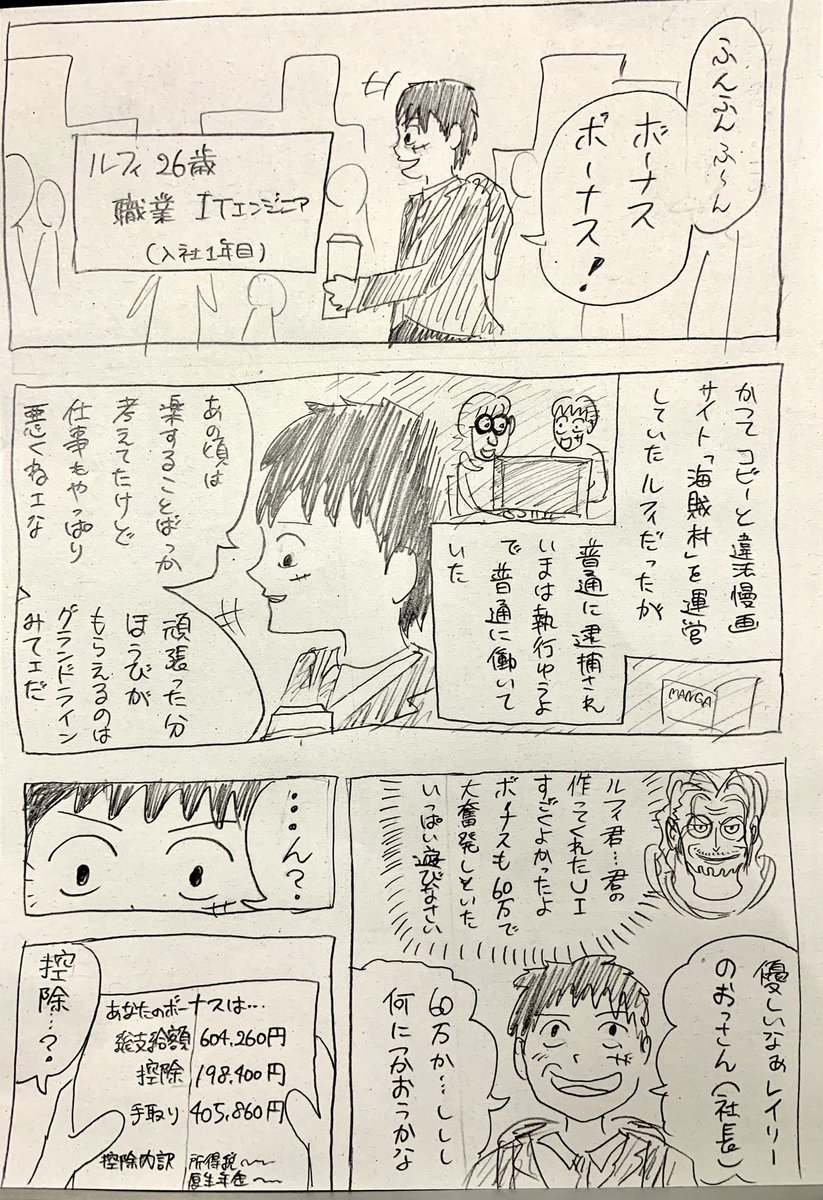 ふんふんふ〜ん
ボーナス
ボーナス!
ルフィ 26歳
職業 ITエンジニア
(入社1年目)
かつてコビーと違法慢画
サイト「海賊村」を運営
していたルフィだったが
普通に逮捕され
いまは執行ゆうよ
で普通に働いて
いた
MANGA
あの頃は
楽することばっか
考えてたけど
仕事もやっぱり
悪くねェな
頑張った分
ほうびが
もらえるのは
グランドライン
みてェだ
ルフィ君…君の
作ってくれたUI
すごくよかったよ
ボーナスも60万で
大奮発しといた
いっぱい遊びなさい
優しいなぁレイリー
のおっさん(社長)
60万か…ししし
何につかおうかな
…ん?
控除…?
あなたのボーナスは…
総支給額 604,260円
控除 198,400円
手取り 405,860円
控除内訳 所得税〜〜
厚生年金〜〜